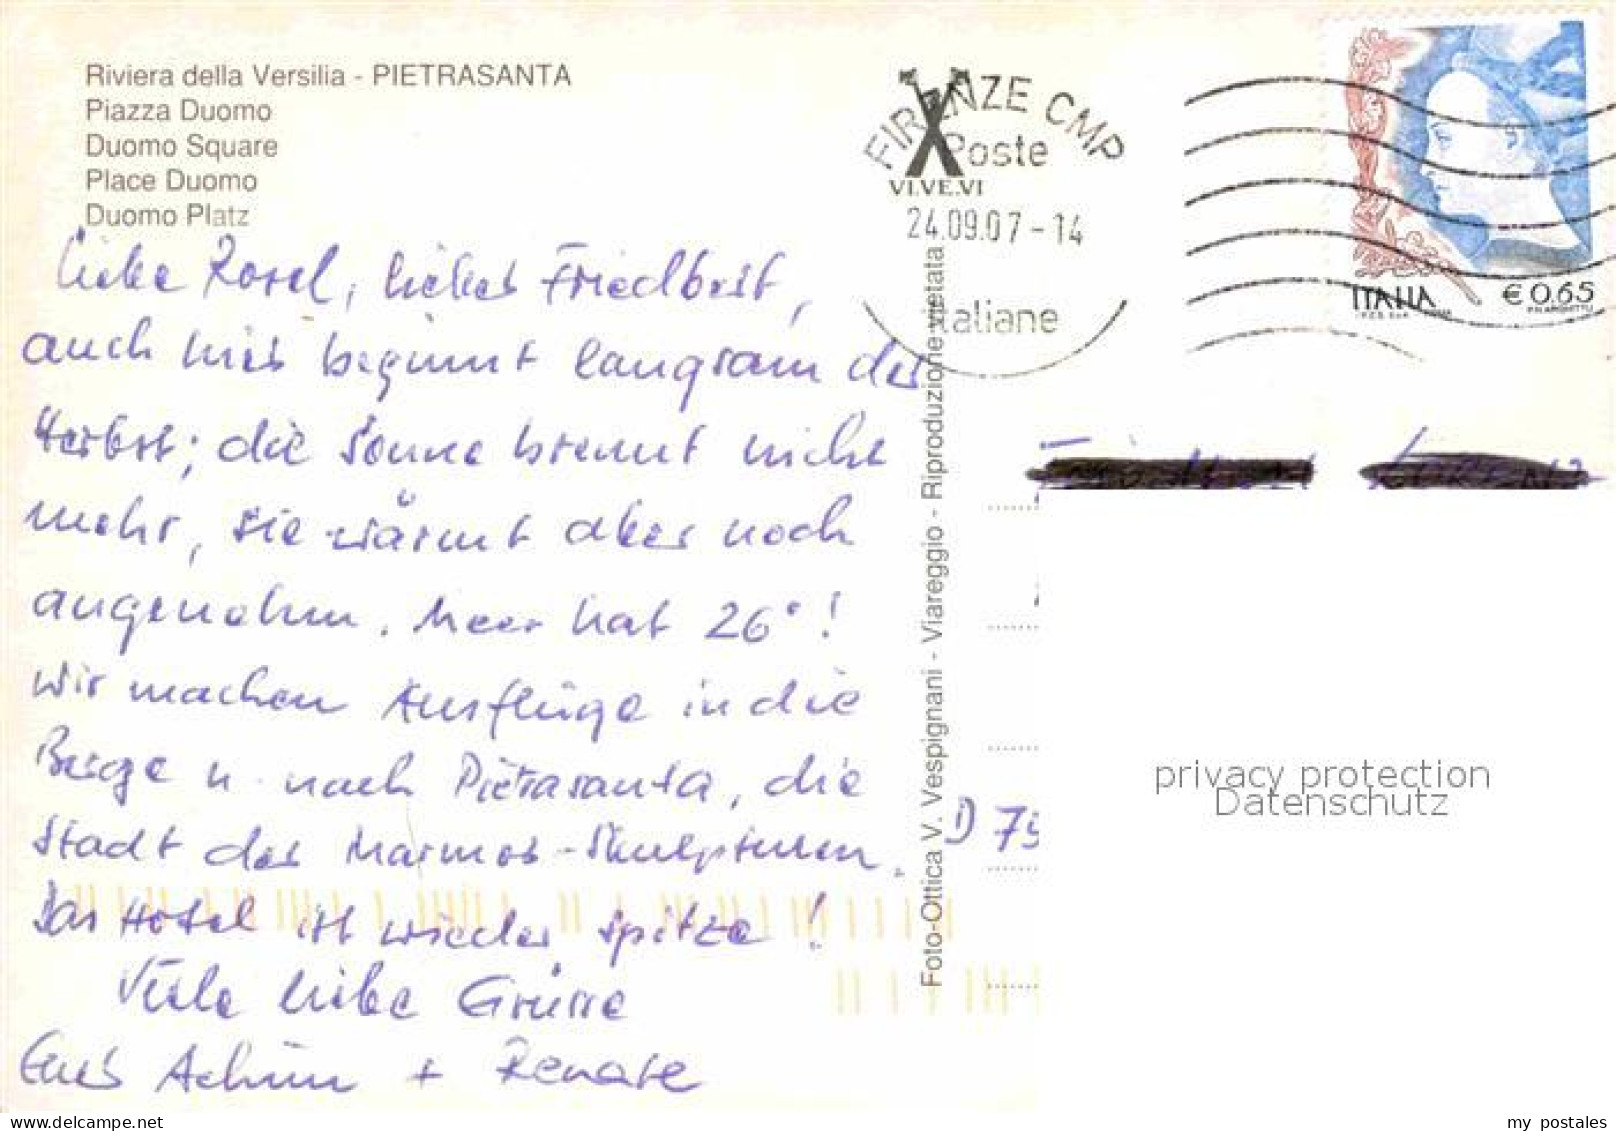 Riviera della Versilia - PIETRASANTA
Piazza Duomo
Duomo Square
Place Duomo
Duomo Platz
Liebe Rosel, lieber Friedbert,
auch hier beginnt langsam der
Herbst; die Sonne brennt nicht
mehr, sie wärmt aber noch
angenehm. Meer hat 26°!
Wir machen Ausflüge in die
Berge u. nach Pietrasanta, die
Stadt der Marmor-Skulpturen.
Das Hotel ist wieder spitze!
Viele liebe Grüsse
Eure Achim + Renate
Foto-Ottica V. Vespignani - Viareggio - Riproduzione vietata
FIRENZE CMP
Poste
VI.VE.VI
24.09.07-14
Italiane
ITALIA
€ 0,65
D 79
privacy protection
Datenschutz
my postales